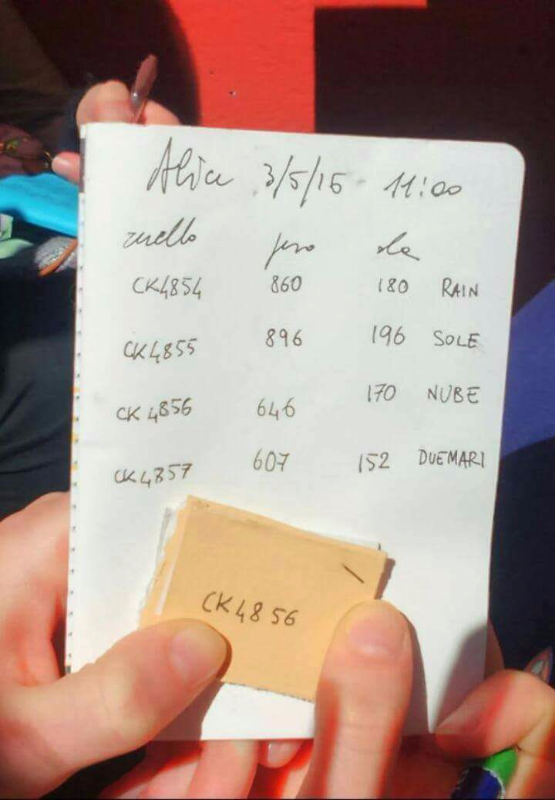 Alice 3/5/16 11:00
anello peso ala
CK4854 860 180 RAIN
CK4855 896 196 SOLE
CK4856 646 170 NUBE
CK4857 607 152 DUEMARI
CK4856